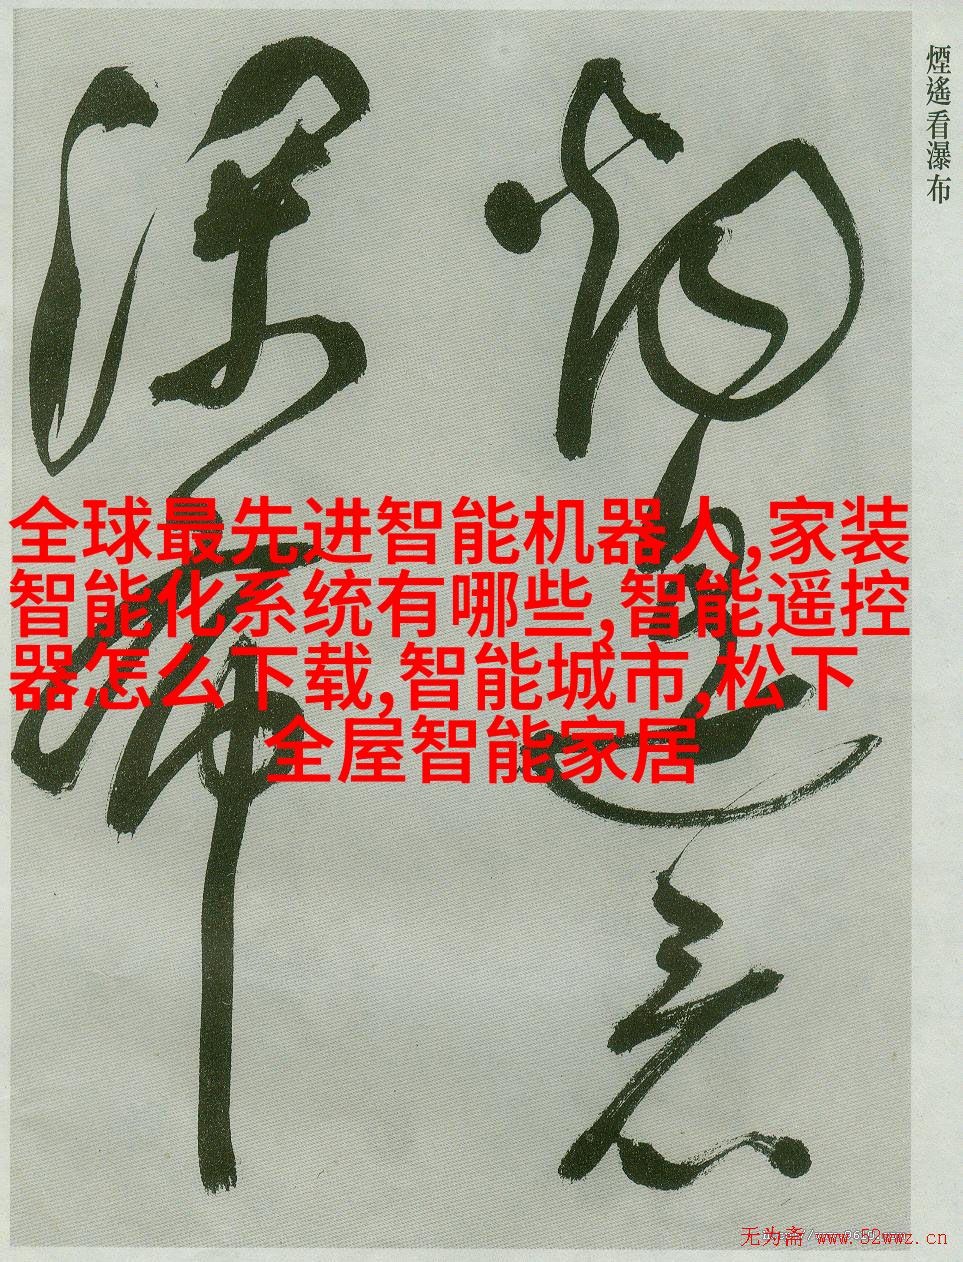 煙遙看瀑布
全球最先进智能机器人,家装
智能化系统有哪些,智能遥控
器怎么下载,智能城市,松下
全屋智能家居
煙遙看
瀑布
无为斋 www.52wwz.cn